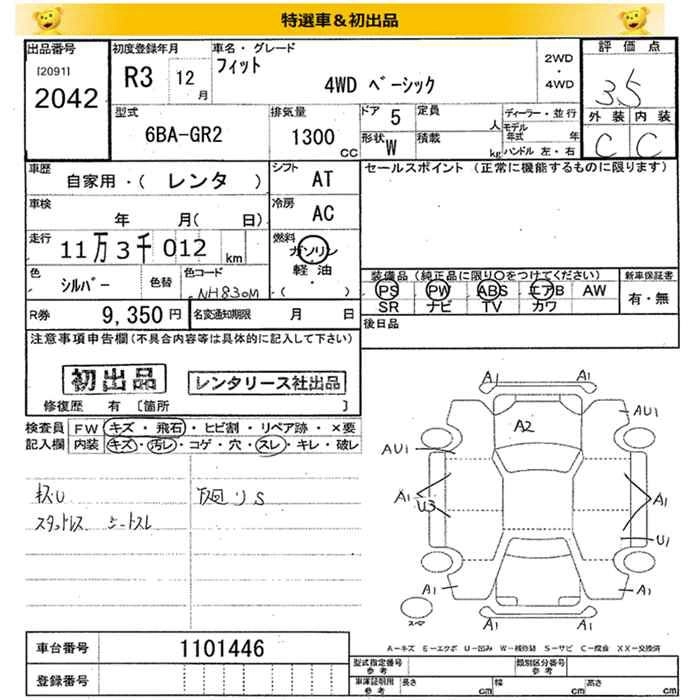 特選車＆初出品
出品番号
[2091]
2042
初度登録年月
R3 12 月
車名・グレード
フィット
4WD ベーシック
2WD
・
4WD
評価点
3.5
外装 内装
C C
型式
6BA-GR2
排気量
1300 CC
ドア 5
形状 W
定員 人
積載 kg
ディーラー・並行
モデル年式 年
ハンドル 左・右
車歴
自家用・( レンタ )
シフト AT
車検
年 月( 日)
冷房 AC
走行
11万3千012 km
燃料
ガソリン
軽油
・( )
色
シルバー
色替
色コード
NH830M
セールスポイント (正常に機能するものに限ります)
装備品 (純正品に限り○をつけてください)
PS PW ABS エアB AW
SR ナビ TV カワ
新車保証書
有・無
R券 9,350 円
名変通知期限 月 日
後日品
注意事項申告欄(不具合内容等は具体的に記入して下さい)
初出品
レンタリース社出品
修復歴 有 [箇所 ]
検査員記入欄
FW キズ・飛石・ヒビ割・リペア跡・×要
内装 キズ・汚レ・コゲ・穴・スレ・キレ・破レ
キズU
下廻りS
スタットレス シートスレ
A1 A1
A2
AU1
AU1
A1
U3
A1
U1
A1 A1
A1 A1
スペア
A－キズ E－エクボ U－凹み W－補修跡 S－サビ C－腐食 XX－交換済
車台番号 1101446
登録番号
型式指定番号 参考
類別区分番号 参考
車庫証明用 参考
長さ cm
幅 cm
高さ cm